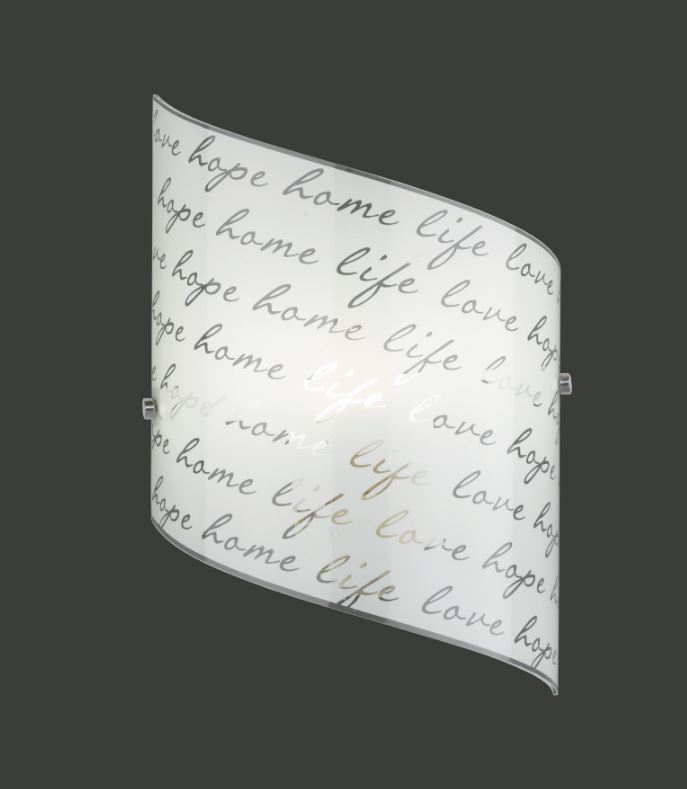 love hope home life love
hope home life love hope
ve hope home life love h
hope home life love hope
e hope home life love hop
pe home life love hope h
hope home life love hope